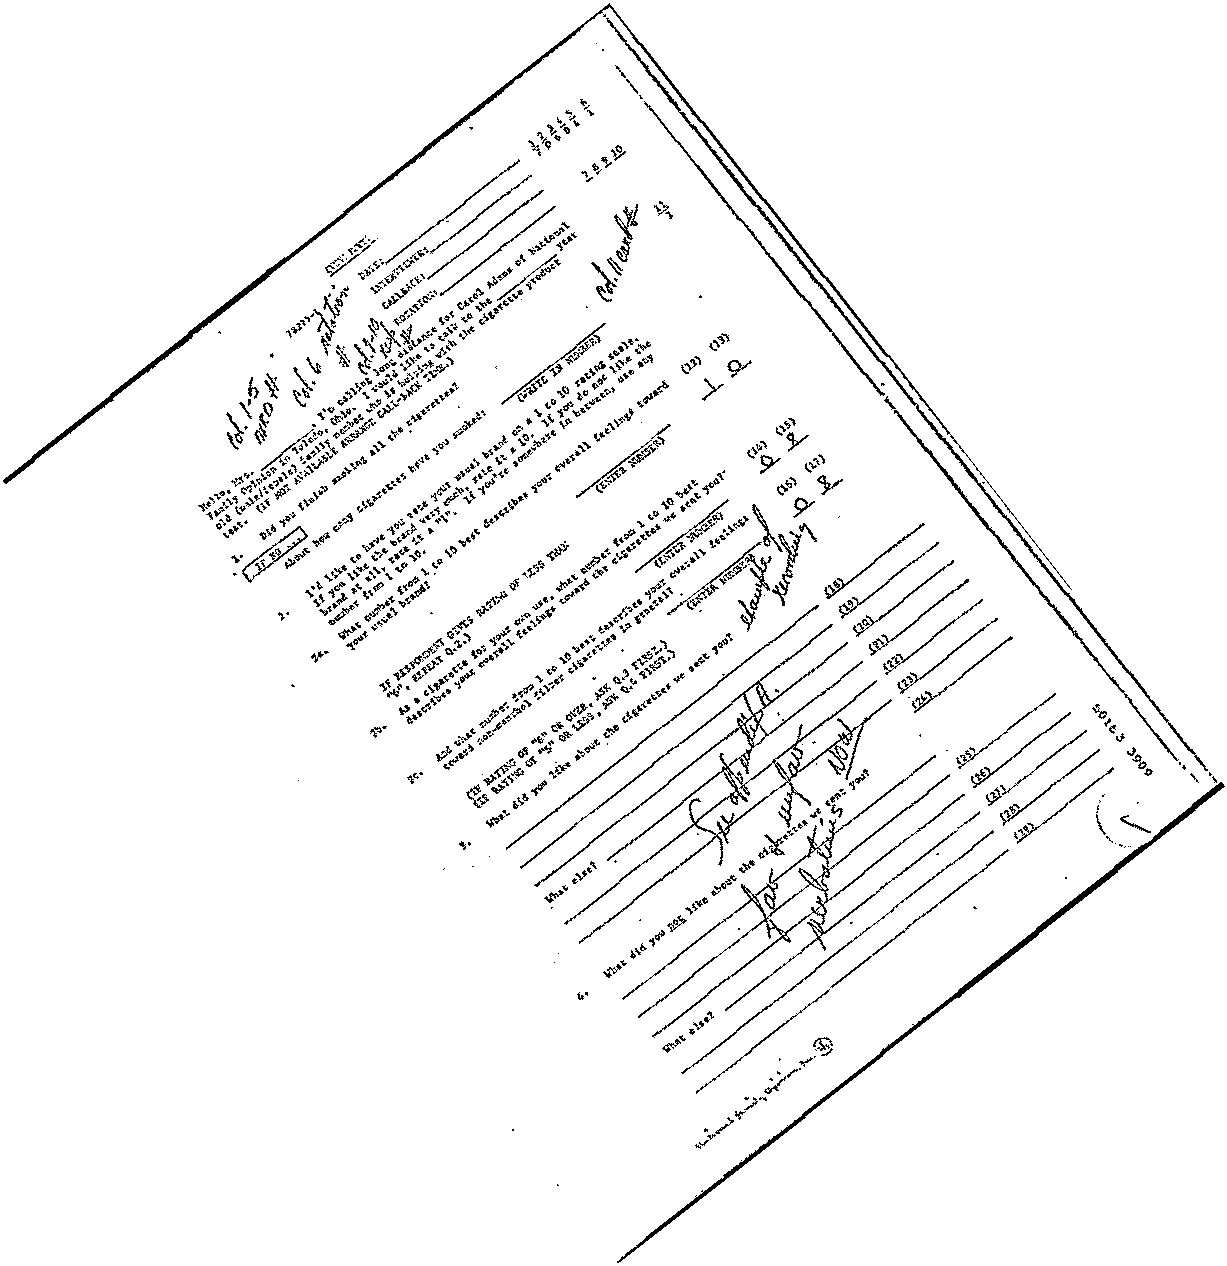 DATE:
INTERVIEWER:
CALLBACK:
ROTATION:
1 2 3 4 5 6
7 8 9 10
Col. 1-5
Col. 6 rotation
#.
Col. 7-10
Col. 11 card #
11
Hello, Mrs. , I'm calling long distance for Carol Adams of National
Family Opinion in Toledo, Ohio. I would like to talk to the year
old (male/female) family member who is helping with the cigarette product
test. (IF NOT AVAILABLE ARRANGE CALL-BACK TIME.)
1. Did you finish smoking all the cigarettes?
IF NO
About how many cigarettes have you smoked:
(WRITE IN NUMBER)
2. I'd like to have you rate your usual brand on a 1 to 10 rating scale.
If you like the brand very much, rate it a 10. If you do not like the
brand at all, rate it a "1". If you're somewhere in between, use any
number from 1 to 10.
2a. What number from 1 to 10 best describes your overall feelings toward
your usual brand?
(ENTER NUMBER)
(12) (13)
1 0
IF RESPONDENT GIVES RATING OF LESS THAN
"6", REPEAT Q.2.)
2b. As a cigarette for your own use, what number from 1 to 10 best
describes your overall feelings toward the cigarettes we sent you?
(ENTER NUMBER)
(14) (15)
0 8
2c. And what number from 1 to 10 best describes your overall feelings
toward non-menthol filter cigarettes in general?
(ENTER NUMBER)
(16) (17)
0 8
(IF RATING OF "6" OR OVER, ASK Q.3 FIRST.)
(IF RATING OF "5" OR LESS, ASK Q.4 FIRST.)
3. What did you like about the cigarettes we sent you?
(18)
(19)
(20)
What else?
(21)
(22)
(23)
(24)
4. What did you not like about the cigarettes we sent you?
(25)
(26)
What else?
(27)
(28)
(29)
50163 3909